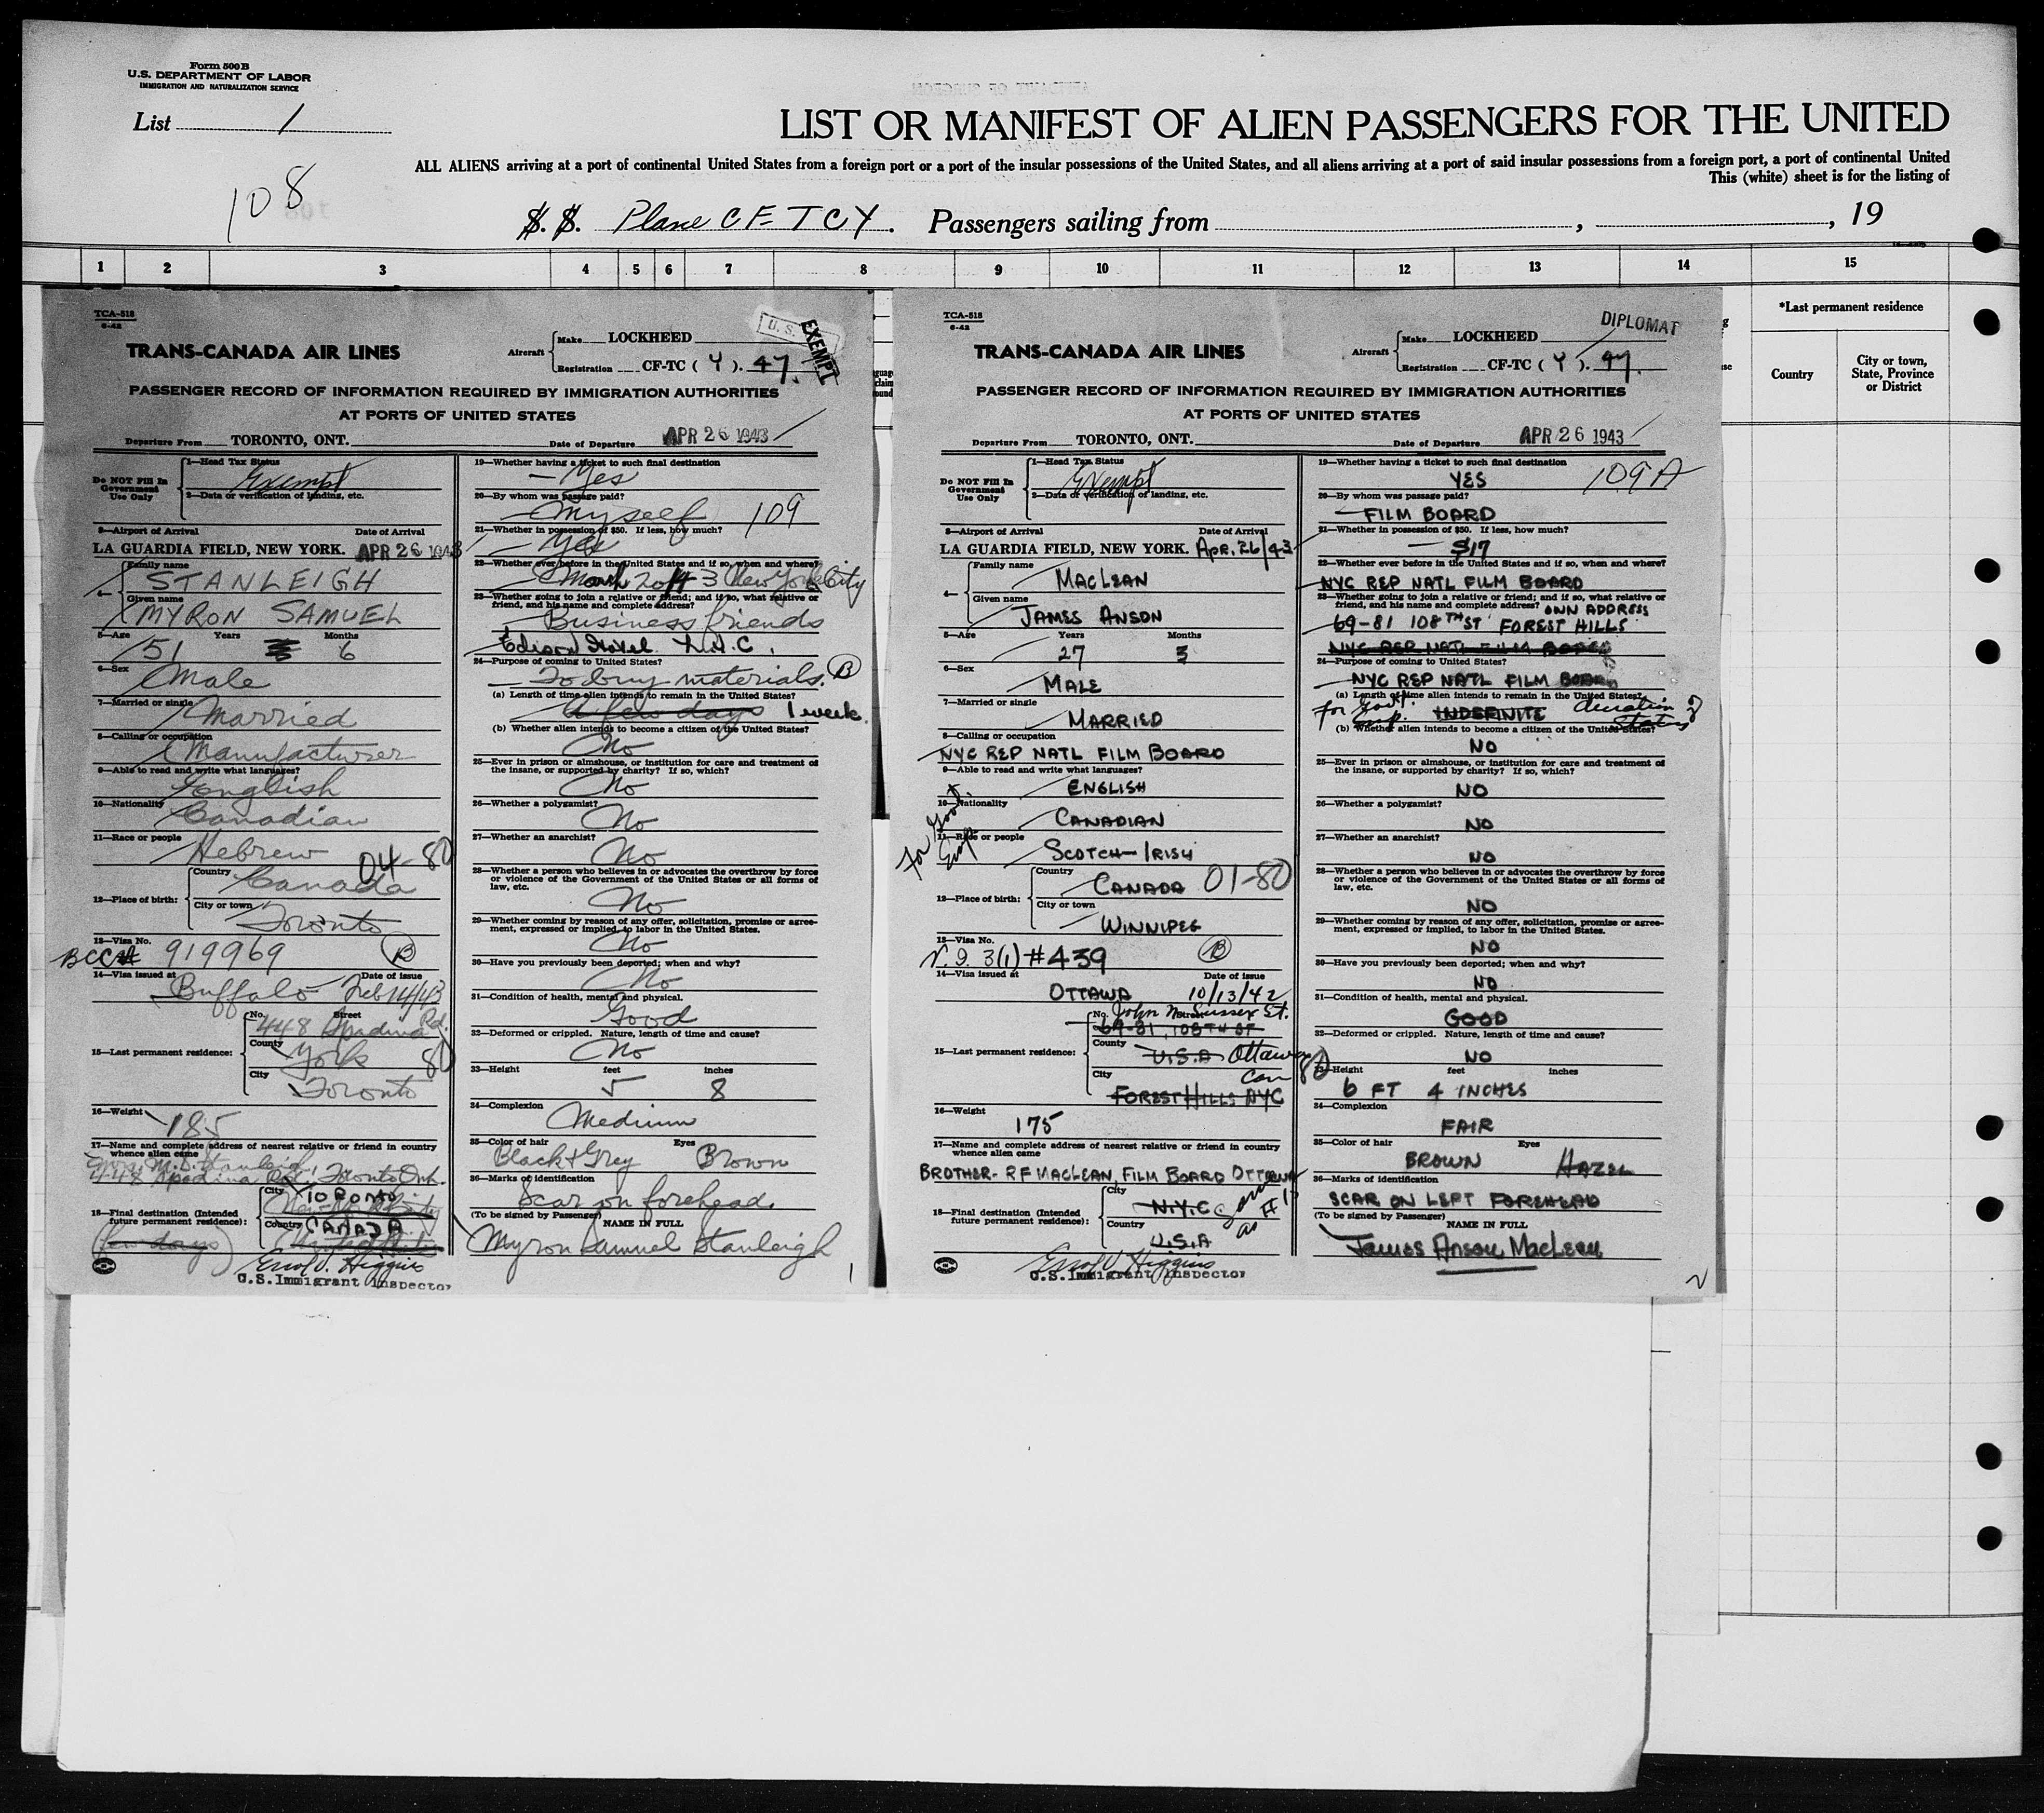 Form 500B
U.S. DEPARTMENT OF LABOR
IMMIGRATION AND NATURALIZATION SERVICE
List 1
LIST OR MANIFEST OF ALIEN PASSENGERS FOR THE UNITED
ALL ALIENS arriving at a port of continental United States from a foreign port or a port of the insular possessions of the United States, and all aliens arriving at a port of said insular possessions from a foreign port, a port of continental United
This (white) sheet is for the listing of
108
S.S. Plane CF-TCY. Passengers sailing from , , 19
1 2 3 4 5 6 7 8 9 10 11 12 13 14 15
*Last permanent residence
Country
City or town, State, Province or District
TCA-518
6-42
TRANS-CANADA AIR LINES
Aircraft
Make LOCKHEED
Registration CF-TC (Y). 47.
U.S.
EXEMPT
PASSENGER RECORD OF INFORMATION REQUIRED BY IMMIGRATION AUTHORITIES
AT PORTS OF UNITED STATES
Departure From TORONTO, ONT. Date of Departure APR 26 1943
Do NOT Fill In Government Use Only
1—Head Tax Status
Exempt
2—Data or verification of landing, etc.
3—Airport of Arrival Date of Arrival
LA GUARDIA FIELD, NEW YORK. APR 26 1943
4—
Family name
STANLEIGH
Given name
MYRON SAMUEL
5—Age Years Months
51 6
6—Sex
Male
7—Married or single
Married
8—Calling or occupation
Manufacturer
9—Able to read and write what languages?
English
10—Nationality
Canadian
11—Race or people
Hebrew 04-80
12—Place of birth:
Country
Canada
City or town
Toronto
13—Visa No.
BCC# 919969 B
14—Visa issued at Date of issue
Buffalo Feb 14/43
15—Last permanent residence:
No. Street
448 Spadina Rd.
County
York 80
City
Toronto
16—Weight
185
17—Name and complete address of nearest relative or friend in country whence alien came
Mrs. M.S. Stanleigh,
448 Spadina Rd. Toronto Ont.
18—Final destination (Intended future permanent residence):
City
TORONTO
Country
CANADA
(few days)
Errol V. Higgins
U.S. Immigrant Inspector
19—Whether having a ticket to such final destination
Yes
20—By whom was passage paid?
Myself 109
21—Whether in possession of $50. If less, how much?
Yes
22—Whether ever before in the United States and if so, when and where?
March 20/43 New York City
23—Whether going to join a relative or friend; and if so, what relative or friend, and his name and complete address?
Business friends
Edison Hotel N.Y.C.
24—Purpose of coming to United States?
To buy materials. B
(a) Length of time alien intends to remain in the United States?
A few days 1 week
(b) Whether alien intends to become a citizen of the United States?
No
25—Ever in prison or almshouse, or institution for care and treatment of the insane, or supported by charity? If so, which?
No
26—Whether a polygamist?
No
27—Whether an anarchist?
No
28—Whether a person who believes in or advocates the overthrow by force or violence of the Government of the United States or all forms of law, etc.
No
29—Whether coming by reason of any offer, solicitation, promise or agreement, expressed or implied, to labor in the United States.
No
30—Have you previously been deported; when and why?
No
31—Condition of health, mental and physical.
Good
32—Deformed or crippled. Nature, length of time and cause?
No
33—Height feet inches
5 8
34—Complexion
Medium
35—Color of hair Eyes
Black & Grey Brown
36—Marks of identification
Scar on forehead.
(To be signed by Passenger)
NAME IN FULL
Myron Samuel Stanleigh
1
TCA-518
6-42
TRANS-CANADA AIR LINES
Aircraft
Make LOCKHEED
Registration CF-TC (Y). 47.
DIPLOMAT
PASSENGER RECORD OF INFORMATION REQUIRED BY IMMIGRATION AUTHORITIES
AT PORTS OF UNITED STATES
Departure From TORONTO, ONT. Date of Departure APR 26 1943
Do NOT Fill In Government Use Only
1—Head Tax Status
Exempt
2—Data or verification of landing, etc.
3—Airport of Arrival Date of Arrival
LA GUARDIA FIELD, NEW YORK. Apr. 26/43
4—
Family name
MACLEAN
Given name
JAMES ANSON
5—Age Years Months
27 3
6—Sex
MALE
7—Married or single
MARRIED
8—Calling or occupation
NYC REP NATL FILM BOARD
9—Able to read and write what languages?
ENGLISH
10—Nationality
CANADIAN
For Govt. Emp.
11—Race or people
SCOTCH-IRISH
12—Place of birth:
Country
CANADA 01-80
City or town
WINNIPEG
13—Visa No.
V.9. 3(1) #439 B
14—Visa issued at Date of issue
OTTAWA 10/13/42
15—Last permanent residence:
No. Street
John Sussex St.
69-81, 108TH ST
County
U.S.A Ottawa 80
City Can
FOREST HILLS NYC
16—Weight
175
17—Name and complete address of nearest relative or friend in country whence alien came
BROTHER- RF MACLEAN, FILM BOARD OTTAWA
18—Final destination (Intended future permanent residence):
City
N.Y.C same as #15
Country
U.S.A
Errol V. Higgins
U.S. Immigrant Inspector
19—Whether having a ticket to such final destination
YES 109A
20—By whom was passage paid?
FILM BOARD
21—Whether in possession of $50. If less, how much?
$17
22—Whether ever before in the United States and if so, when and where?
NYC REP NATL FILM BOARD
23—Whether going to join a relative or friend; and if so, what relative or friend, and his name and complete address? OWN ADDRESS
69-81 108TH ST FOREST HILLS
NYC REP NATL FILM BOARD
24—Purpose of coming to United States?
NYC REP NATL FILM BOARD
(a) Length of time alien intends to remain in the United States?
For Govt. Emp. INDEFINITE duration of status
(b) Whether alien intends to become a citizen of the United States?
NO
25—Ever in prison or almshouse, or institution for care and treatment of the insane, or supported by charity? If so, which?
NO
26—Whether a polygamist?
NO
27—Whether an anarchist?
NO
28—Whether a person who believes in or advocates the overthrow by force or violence of the Government of the United States or all forms of law, etc.
NO
29—Whether coming by reason of any offer, solicitation, promise or agreement, expressed or implied, to labor in the United States.
NO
30—Have you previously been deported; when and why?
NO
31—Condition of health, mental and physical.
GOOD
32—Deformed or crippled. Nature, length of time and cause?
NO
33—Height feet inches
6 FT 4 INCHES
34—Complexion
FAIR
35—Color of hair Eyes
BROWN HAZEL
36—Marks of identification
SCAR ON LEFT FOREHEAD
(To be signed by Passenger)
NAME IN FULL
James Anson MacLean
2